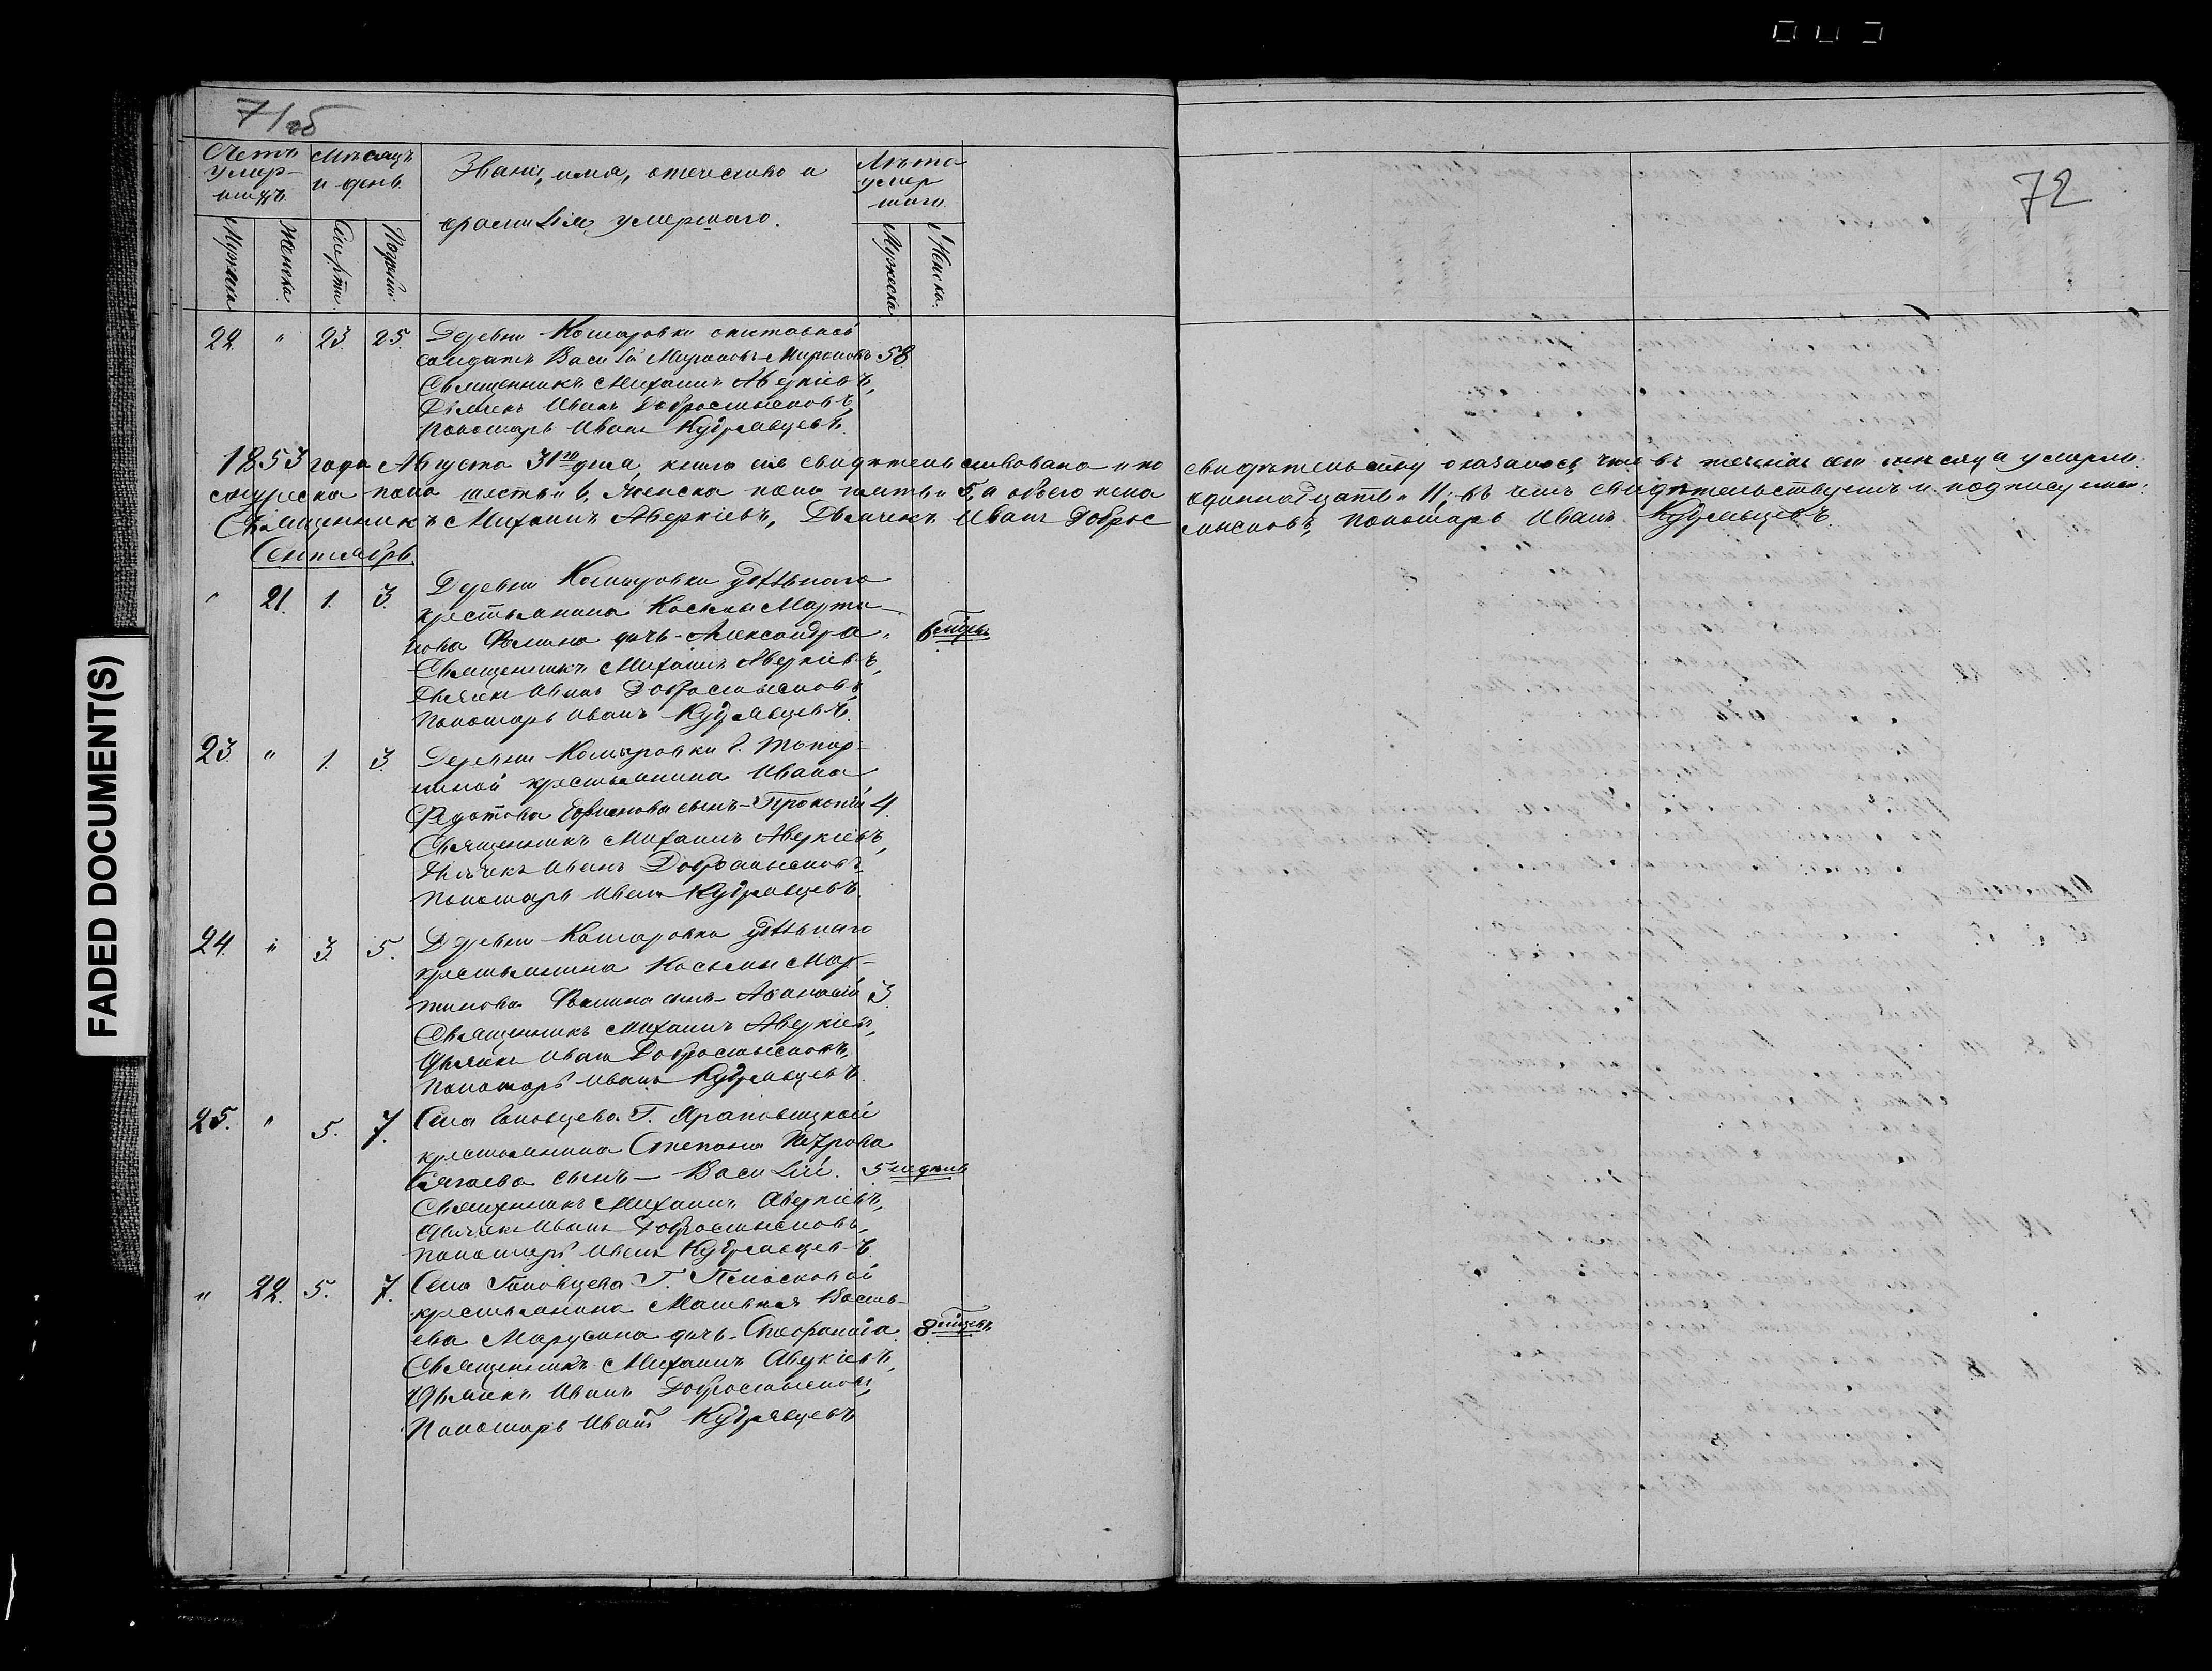 71об
72
Счетъ умер-
шихъ
Мѣсяцъ
и день
Званіе, имя, отечество и
фамилія умершаго.
Лѣта
умер
шаго
Мужеска
Женска
Смерти
Погреб.
Мужеска
Женска.
22. " 23. 25. Деревни Комаровки отставной
солдатъ Василій Мироновъ 58.
Священникъ Михаилъ Аверкіевъ,
Дьячекъ Иванъ Добросмысловъ,
Пономарь Иванъ Кудрявцевъ.
1853 года Августа 31го дня, книга сія свидѣтельствована и по свидѣтельству оказалось, что въ теченіи сего мѣсяца умерло:
мужеска пола шесть 6, женска пола пять 5, а обоего пола одиннадцать 11; въ чемъ свидѣтельствуемъ и подписуемся:
Священникъ Михаилъ Аверкіевъ, Дьячекъ Иванъ Доброс мысловъ, Пономарь Иванъ Кудрявцевъ.
Сентябрь
" 21. 1. 3. Деревни Комаровки удѣльнаго
крестьянина Космы Марти-
нова Фомина дочь Александра. 6 мѣсяц.
Священникъ Михаилъ Аверкіевъ,
Дьячекъ Иванъ Добросмысловъ,
Пономарь Иванъ Кудрявцевъ.
23. " 1. 3. Деревни Комаровки Г.
крестьянина Ивана
Федотова сынъ Прокопій 4.
Священникъ Михаилъ Аверкіевъ,
Дьячекъ Иванъ Добросмысловъ,
Пономарь Иванъ Кудрявцевъ.
24. " 3. 5. Деревни Комаровки удѣльнаго
крестьянина Космы Мар-
тинова Фомина сынъ Афанасій 3.
Священникъ Михаилъ Аверкіевъ,
Дьячекъ Иванъ Добросмысловъ,
Пономарь Иванъ Кудрявцевъ.
25. " 5. 7. Села Головцева Г. Храповицкой
крестьянина Степана Петрова
сынъ – Василій. 5 недѣль
Священникъ Михаилъ Аверкіевъ,
Дьячекъ Иванъ Добросмысловъ,
Пономарь Иванъ Кудрявцевъ.
" 22. 5. 7. Села Головцева Г. Плосковой
крестьянина Матвея Василь-
ева Марусина дочь Стефанида. 8 мѣсяц.
Священникъ Михаилъ Аверкіевъ,
Дьячекъ Иванъ Добросмысловъ,
Пономарь Иванъ Кудрявцевъ
FADED DOCUMENT(S)